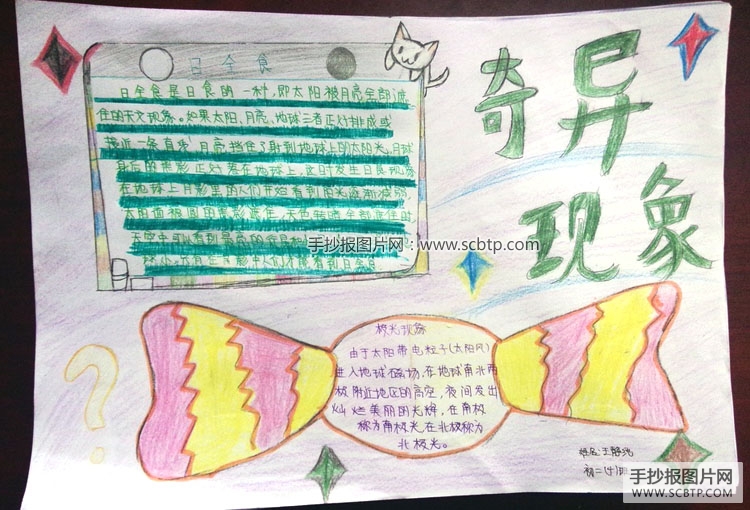 日全食
奇异
现象
日全食是日食的一种,即太阳被月亮全部遮
住的天文现象。如果太阳、月亮、地球三者正好排成或
接近一条直线,月亮挡住了射到地球上的太阳光,月球
身后的黑影正好落在地球上,这时发生日食现象
在地球上月影里的人们开始看到阳光逐渐减弱
太阳面被圆的黑影遮住,天色转暗全部遮住时,
天空中可以看到最亮的恒星和
手抄报图片网:www.scbtp.com
日全食
极光现象
由于太阳带电粒子(太阳风)
进入地球磁场,在地球南北两
极附近地区的高空,夜间发出
灿烂美丽的光辉,在南极
称为南极光,在北极称为
北极光。
?
姓名:王静
初二(4)班
手抄报图片网
WWW.SCBTP.COM